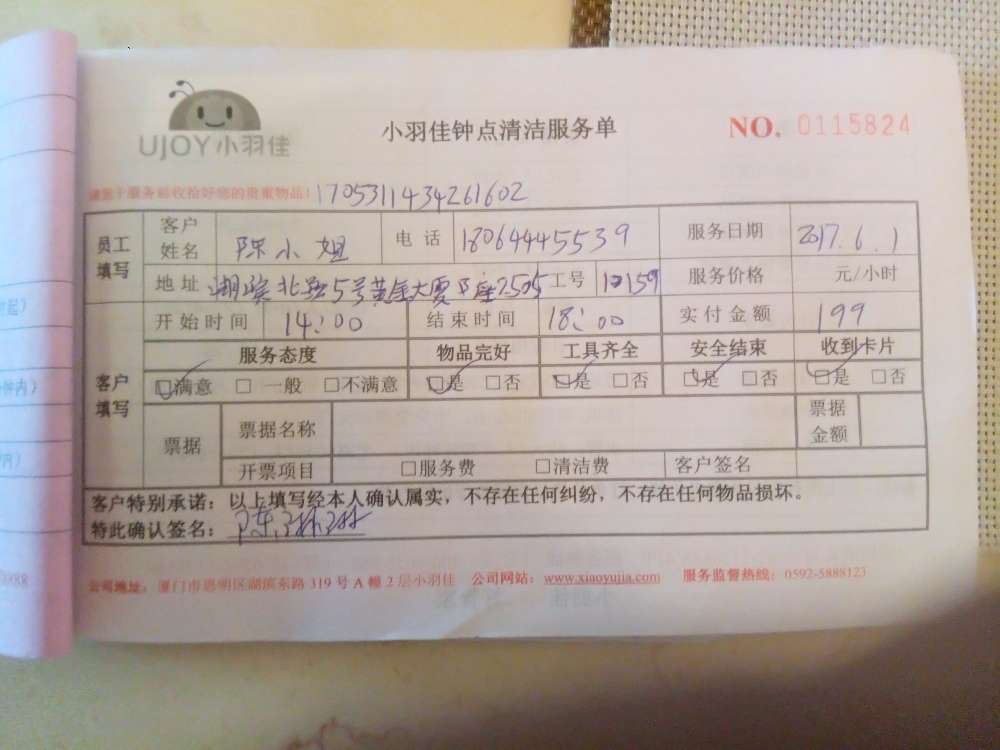 UJOY小羽佳
小羽佳钟点清洁服务单
NO. 0115824
请您于服务前收拾好您的贵重物品! 1705311434261602
员工填写 客户姓名 陈小姐 电话 18064445539 服务日期 2017.6.1
地址 湖滨北路5号黄金大厦B座2505 工号 10159 服务价格 元/小时
开始时间 14:00 结束时间 18:00 实付金额 199
客户填写 服务态度 物品完好 工具齐全 安全结束 收到卡片
☑满意 □一般 □不满意 ☑是 □否 ☑是 □否 ☑是 □否 ☑是 □否
票据 票据名称 票据金额
开票项目 □服务费 □清洁费 客户签名
客户特别承诺:以上填写经本人确认属实,不存在任何纠纷,不存在任何物品损坏。
特此确认签名: 陈琳琳
公司地址:厦门市思明区湖滨东路319号A幢2层小羽佳 公司网站:www.xiaoyujia.com 服务监督热线:0592-5888123